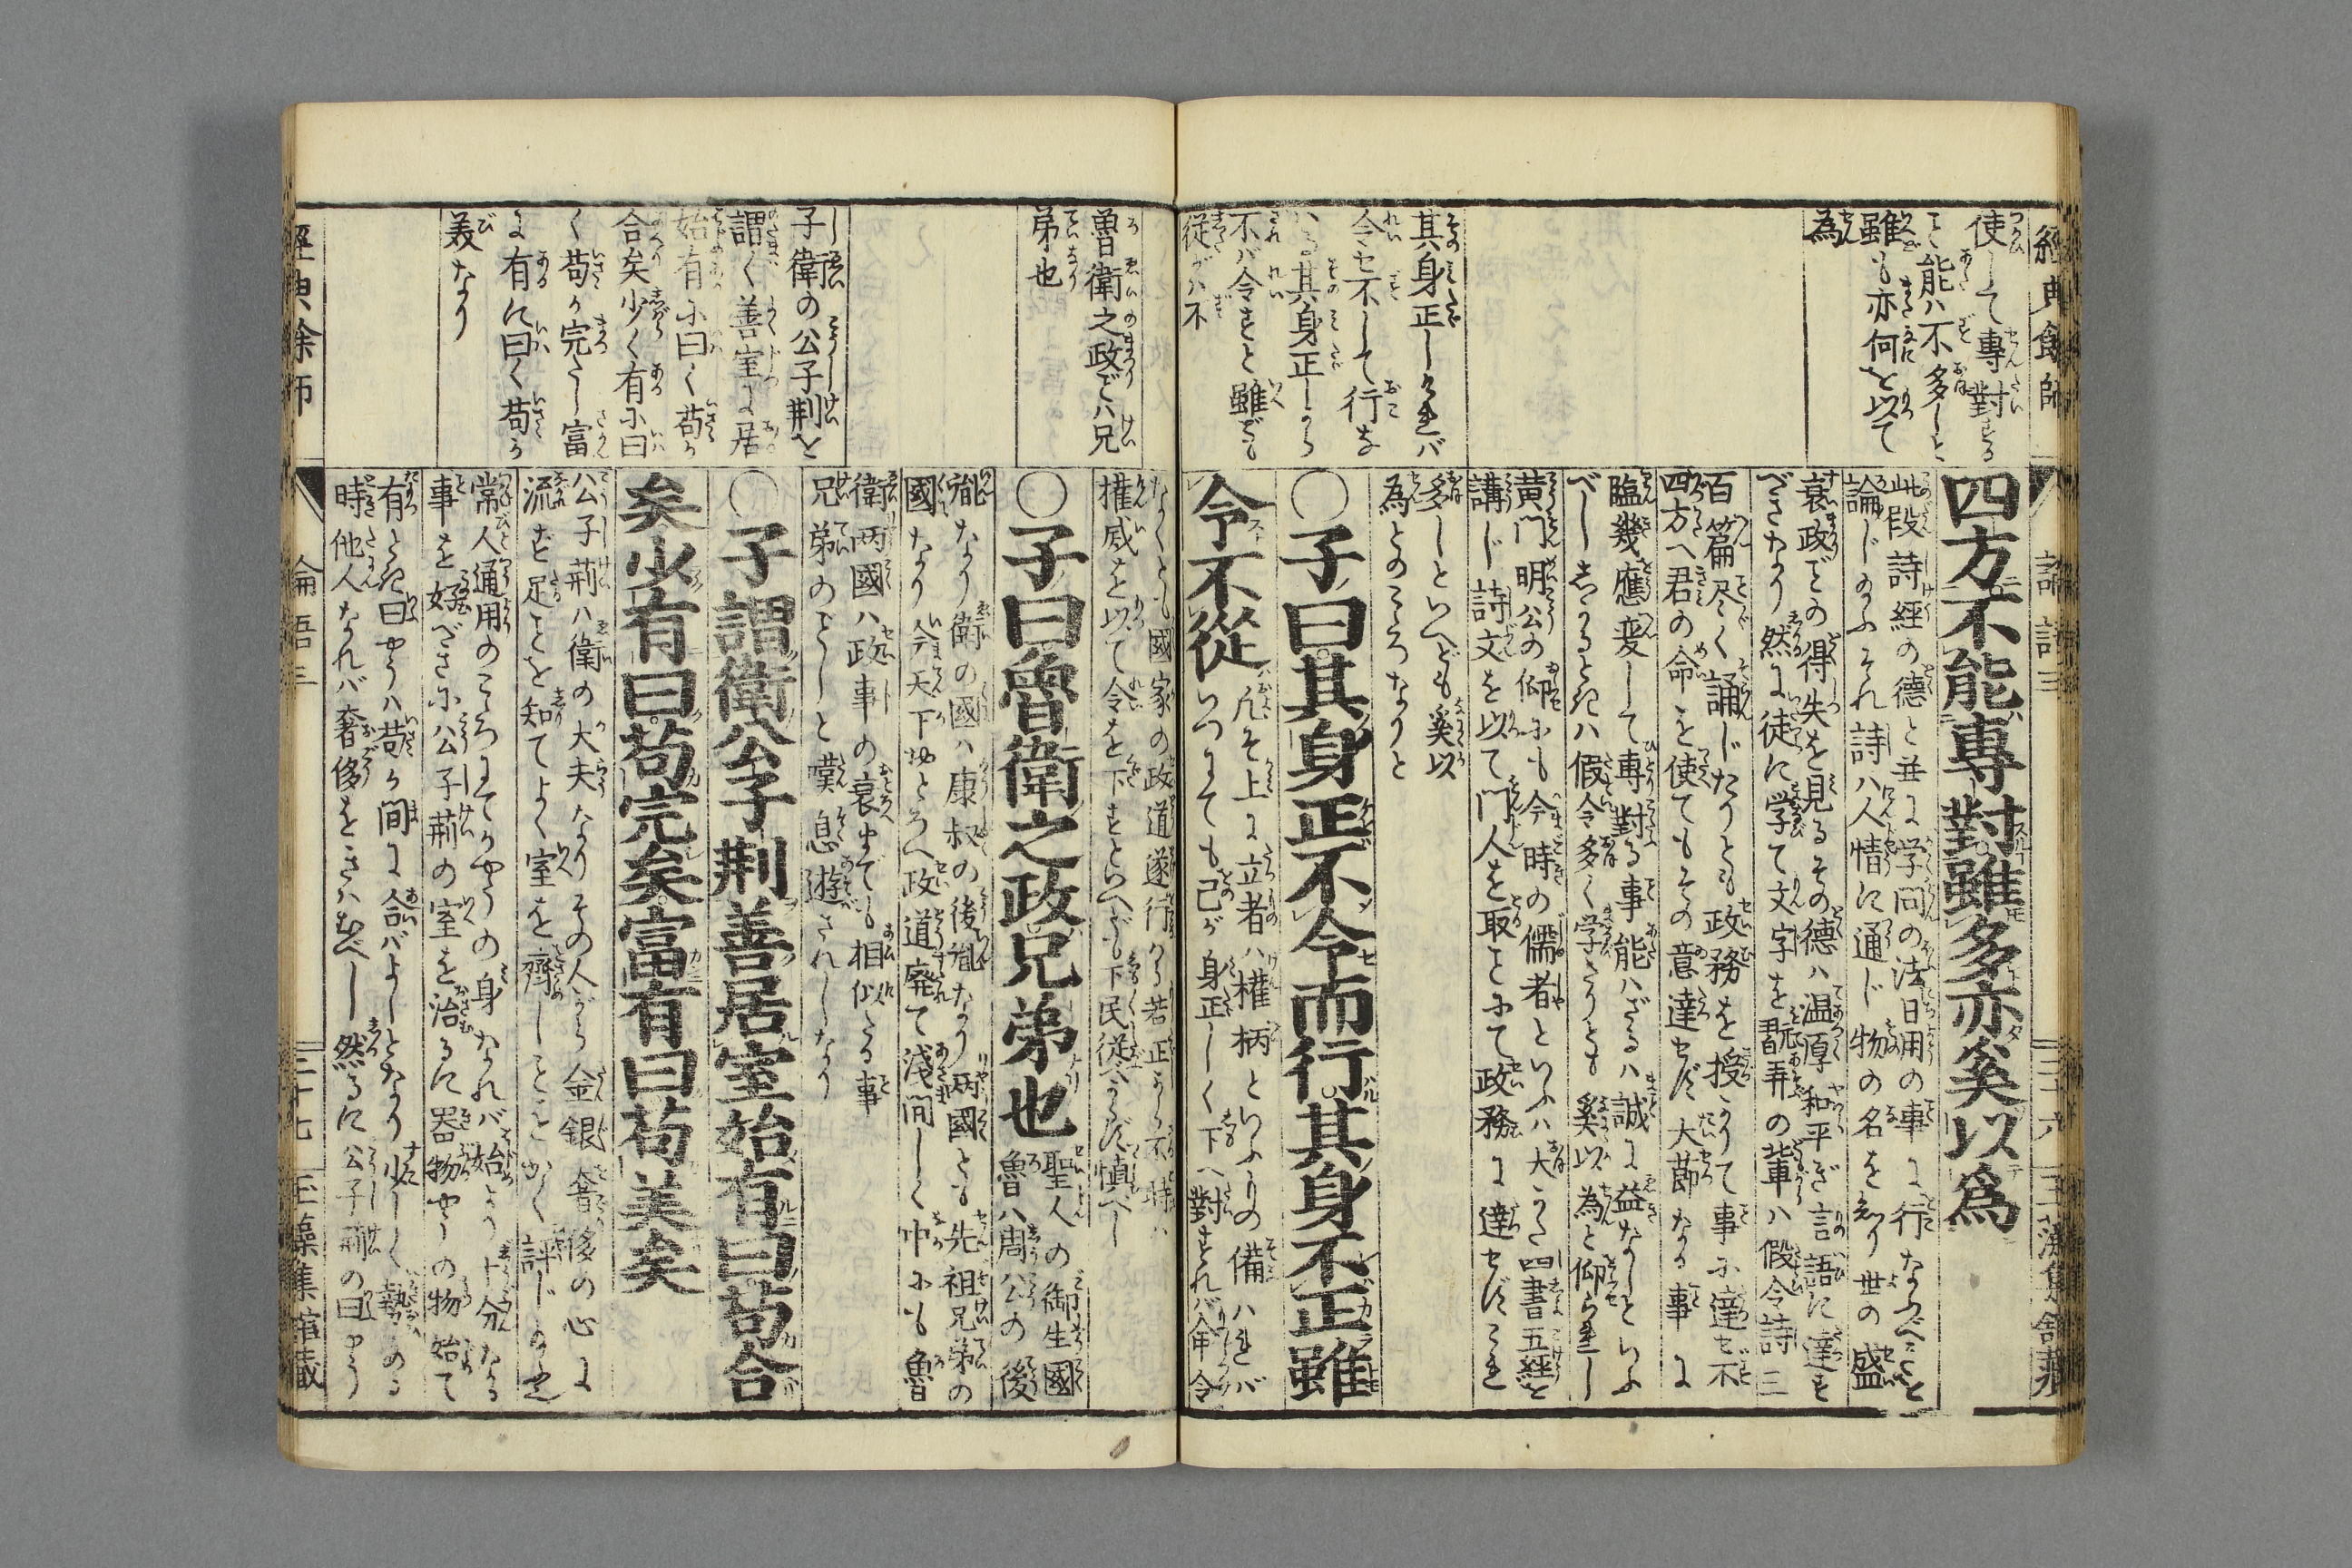 經典餘師
使して專對する
こと能ハ不多しと
雖も亦何を以て
為ん
其身正しけれバ
令セ不して行な
ハる其身正しから
不バ令すと雖ども
從がハ不
四方不能專對雖多亦奚以爲
此段詩經の德と並に学問の法日用の事に行なふべきことを
論じ給ふそれ詩ハ人情に通じ物の名を知り世の盛
衰政ごとの得失を見るその德ハ温厚和平ぎ言語に達す
べきなり然に徒に学て文字を翫弄の輩ハ假令詩三
百篇尽く誦じたりとも政務を授かりて事に達せ不
四方へ君の命を使てもその意達せず大莭なる事に
臨幾應変して專對る事能ハざるハ誠に益なしといふ
べししかるときハ假令多く学たりとも奚以為と仰られし
黄門明公の仰にも今時の儒者といふハ大かた四書五經を
講じ詩文を以て門人を取ことにて政務に達せずこれ
多しといへども奚以
為とのこころなりと
〇子曰其身正不令而行其身不正雖
令不從
凡そ上に立者ハ權柄といふもの備ハれバ
いつにても己が身正しく下へ對すれバ命令
論語三
三十六
玉藻集館藏
魯衛之政ごとハ兄
弟也
子衛の公子荆を
謂く善室に居
始有に曰く苟か
合矣少く有に曰
く苟か完たし富
に有に曰く苟か
美なり
なくとも國家の政道遂行なる若正からざる時ハ
權威を以て令を下すといへども下民從ハず慎べし
〇子曰魯衛之政兄弟也
聖人の御生國
魯ハ周公の後
胤なり衛の國ハ康叔の後胤なり兩國とも先祖兄弟の
國なり今天下おとろへ政道廃て淺間しく中にも魯
衛兩國ハ政事の衰までも相似たる事
兄弟のごとしと嘆息遊されしなり
〇子謂衛公子荆善居室始有曰苟合
矣少有曰苟完矣富有曰苟美矣
公子荆ハ衛の大夫なりその人がら金銀奢侈の心に
流ず足ことを知てよく室を齊しことをかく評じ給ふ
常人通用のこころにてかやうの身なれバ始より十分なる
事を好べきに公子荆の室を治るに器物やうの物始て
有とき曰やうハ苟か間に合バよしとなり少しく勢のる
時他人なれバ奢侈をきハむべし然るに公子荆の曰やう
經典余師
論語三
三十七
玉藻集館藏